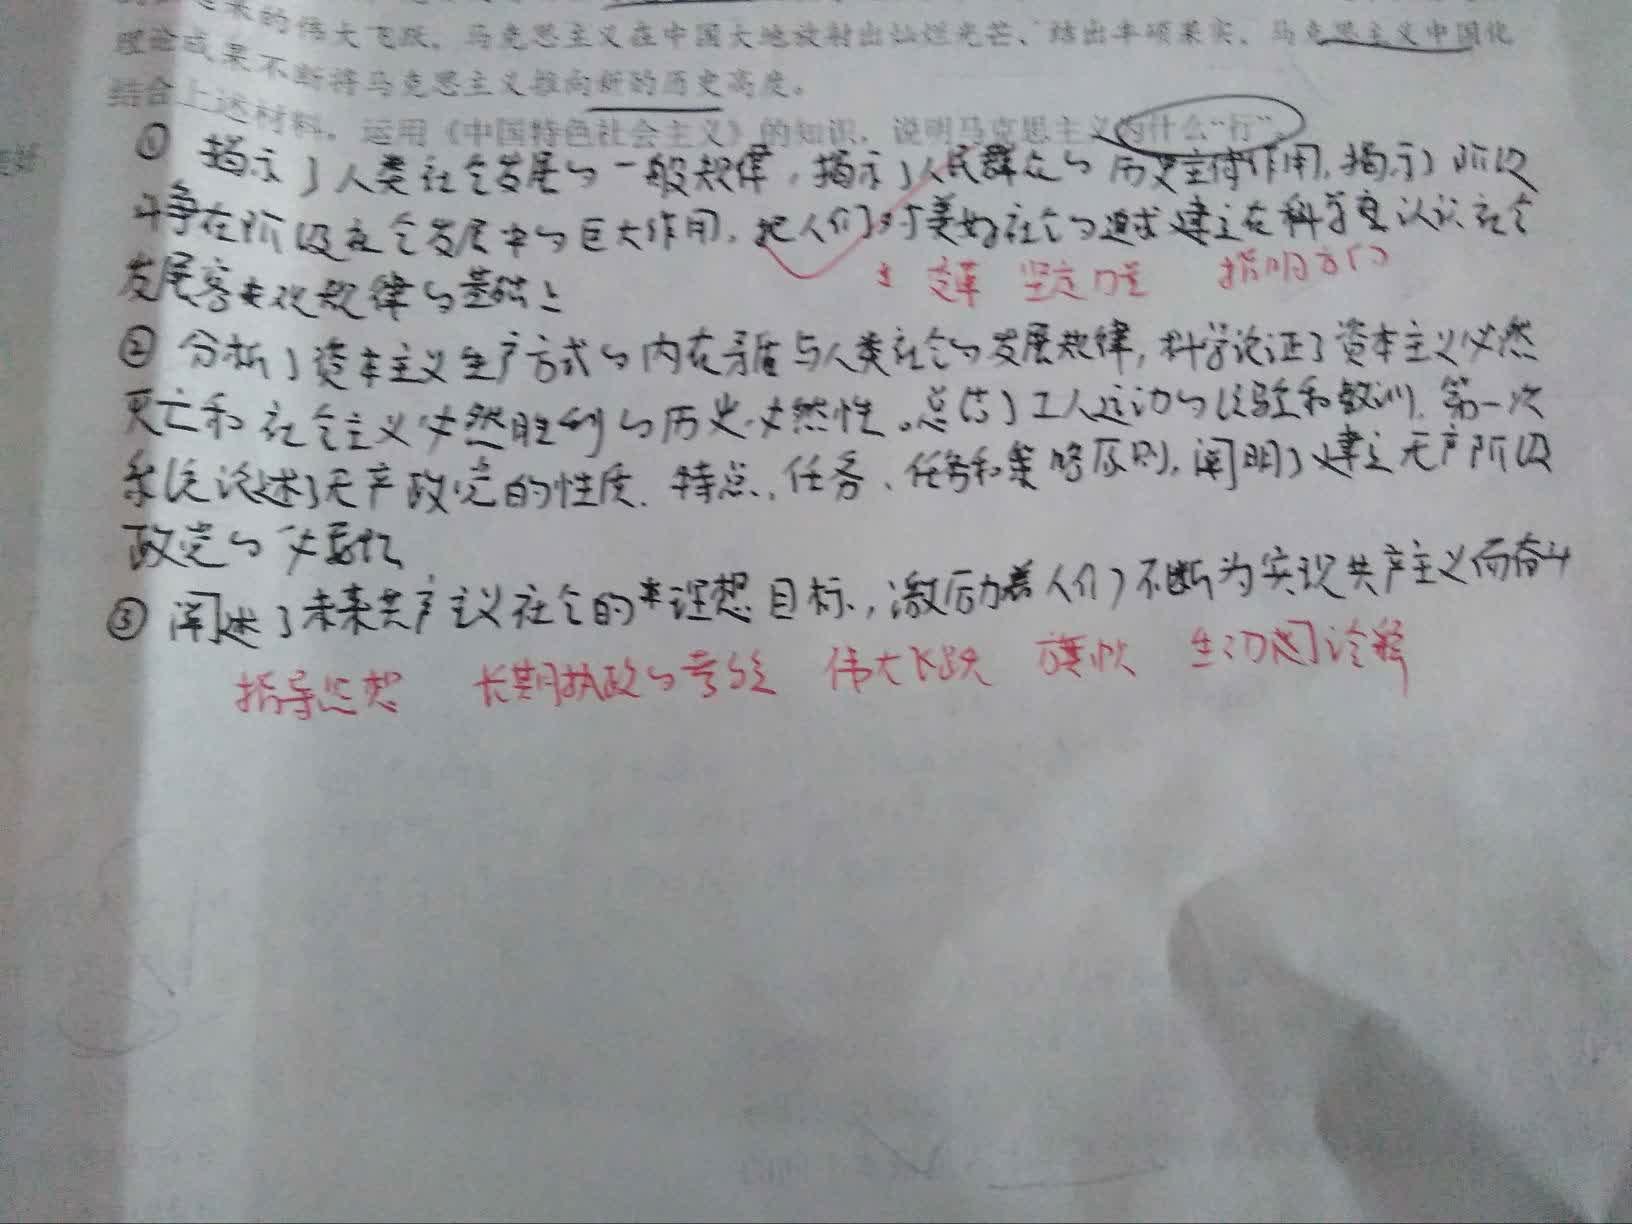 起来的伟大飞跃。马克思主义在中国大地放射出灿烂光芒、结出丰硕果实。马克思主义中国化
理论成果不断将马克思主义推向新的历史高度。
结合上述材料，运用《中国特色社会主义》的知识，说明马克思主义为什么“行”。
① 揭示了人类社会发展的一般规律，揭示了人民群众的历史主体作用，揭示了阶级
斗争在阶级社会发展中的巨大作用，把人们对美好社会的追求建立在科学 认识社会
发展客观规律的基础上
变革 坚定 指明方向
② 分析了资本主义生产方式的内在矛盾与人类社会的发展规律，科学论证了资本主义必然
灭亡和社会主义必然胜利的历史必然性。总结了工人运动的经验和教训，第一次
系统论述了无产政党的性质、特点、任务、任务和策略原则，阐明了建立无产阶级
政党的必要性
③ 阐述了未来共产主义社会的理想目标，激励着人们不断为实现共产主义而奋斗
指导思想 长期执政的考验 伟大飞跃 旗帜 生动诠释